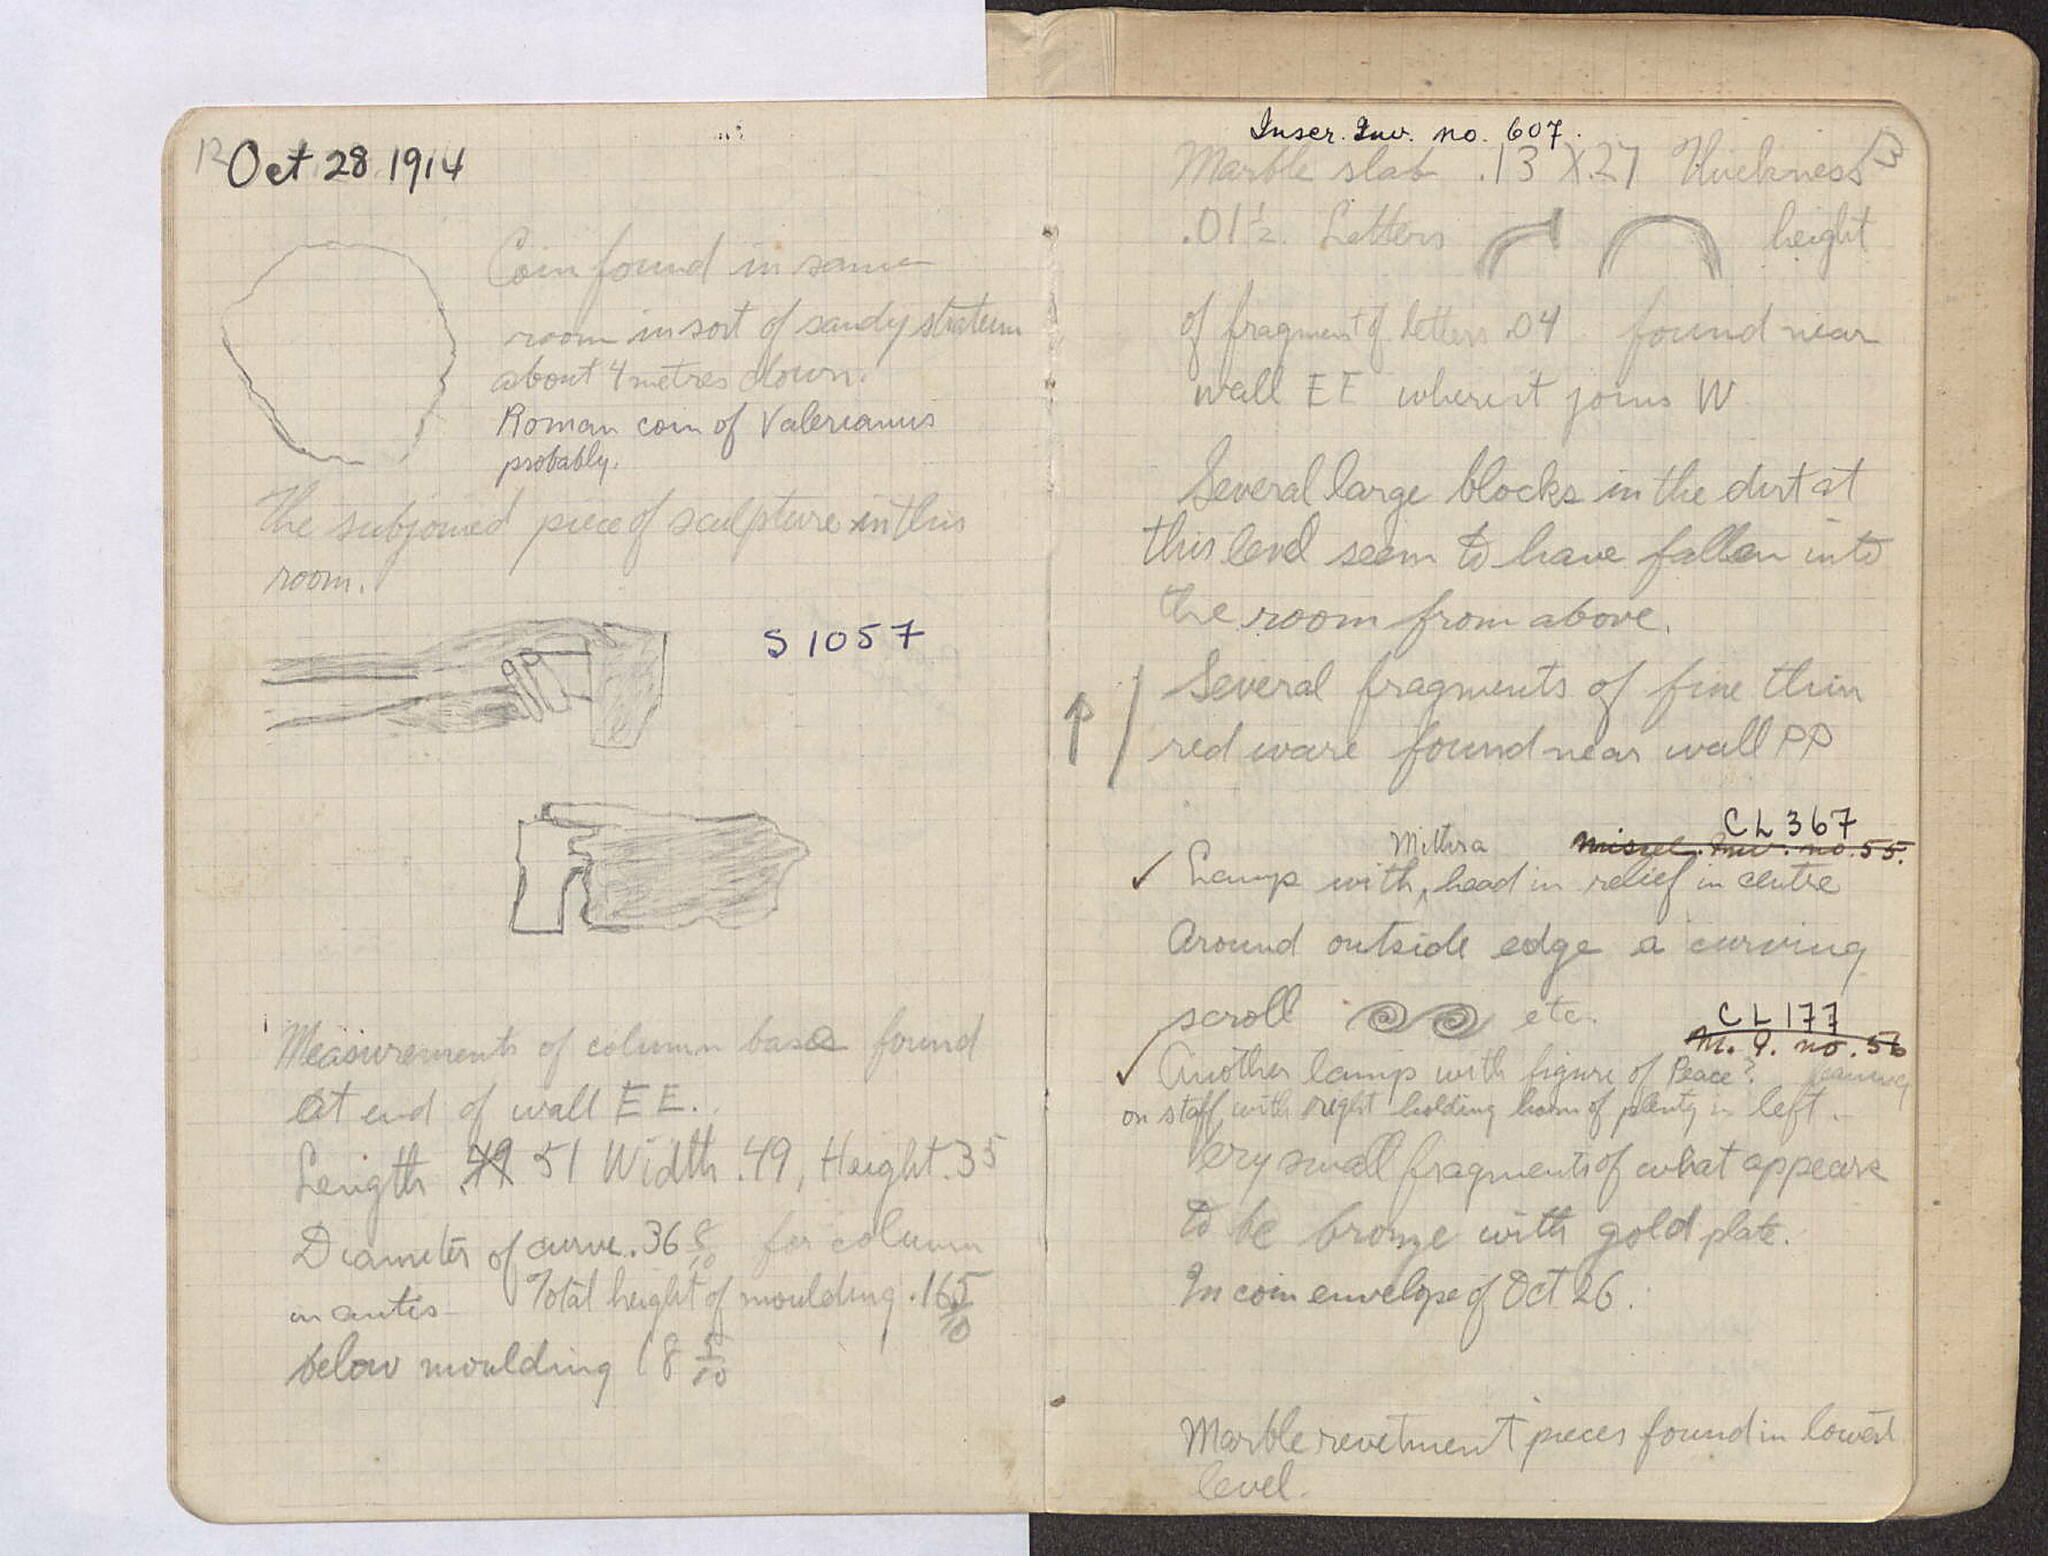 12 Oct 28 1914
Coin found in same
room in sort of sandy stratum
about 4 metres down.
Roman coin of Valerianus
probably.
The subjoined piece of sculpture in this
room.
S 1057
Measurements of column base found
at end of wall EE.
Length .49 51 Width .49, Height .35
Diameter of curve .36 5/10 for column
in antis Total height of moulding .16 5/10
below moulding 18 5/10
Inscr. Inv. no. 607.
13
Marble slab .13 X .27 Thickness
.01 1/2. Letters height
of fragment of letters .04 found near
wall EE where it joins W
Several large blocks in the dirt at
this level seem to have fallen into
the room from above.
Several fragments of fine thin
red ware found near wall PP
CL 367
Mithra Miscel. Inv. no. 55.
✓ Lamp with head in relief in centre
Around outside edge a curving
scroll etc.
CL 177
M. I. no. 56
✓ Another lamp with figure of Peace? leaning
on staff with right holding horn of plenty in left.
Very small fragments of what appears
to be bronze with gold plate.
In coin envelope of Oct 26.
Marble revetment pieces found in lowest
level.